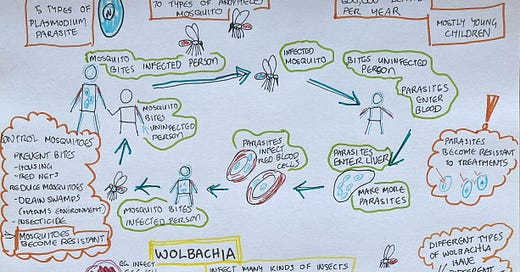 5 TYPES OF
PLASMODIUM
PARASITE
70 TYPES OF ANOPHELES
MOSQUITO
PER YEAR
MOSTLY YOUNG
CHILDREN
MOSQUITO
BITES INFECTED PERSON
INFECTED
MOSQUITO
BITES UNINFECTED
PERSON
PARASITES
ENTER
BLOOD
MOSQUITO
BITES
UNINFECTED
PERSON
PARASITES
INFECT
RED BLOOD
CELLS
PARASITES
ENTER LIVER
MAKE MORE
PARASITES
MOSQUITO BITES
INFECTED PERSON
CONTROL MOSQUITOES
PREVENT BITES
- HOUSING
- BED NETS
REDUCE MOSQUITOES
- DRAIN SWAMPS
(HARMS ENVIRONMENT)
- INSECTICIDE
MOSQUITOES
BECOME RESISTANT
PARASITES
BECOME RESISTANT
TO TREATMENTS
WOLBACHIA
INFECT MANY KINDS OF INSECTS
EG INFECT
DIFFERENT TYPES
OF WOLBACHIA
HAVE
DIFFERENT